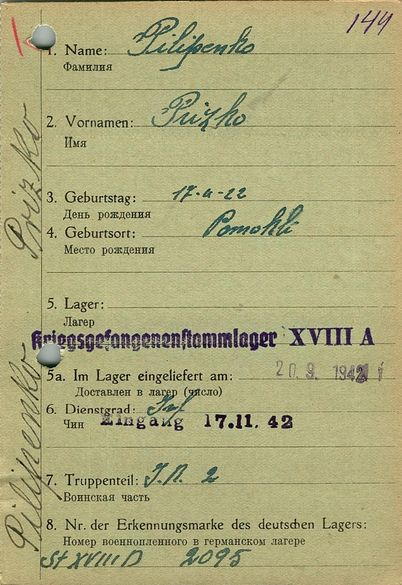 144
1. Name: Pilipenko
Фамилия
2. Vornamen: Prizko
Имя
3. Geburtstag: 17-4-22
День рождения
4. Geburtsort: Pomokli
Место рождения
5. Lager:
Лагер
Kriegsgefangenenstammlager XVIII A
5a. Im Lager eingeliefert am: 20.9. 1941
Доставлен в лагер (число)
6. Dienstgrad:
Чин Eingang 17.11. 42
7. Truppenteil: J.R. 2
Воинская часть
8. Nr. der Erkennungsmarke des deutschen Lagers:
Номер военнопленного в германском лагере
St XVIII D 2095
Pilipenko Prizko